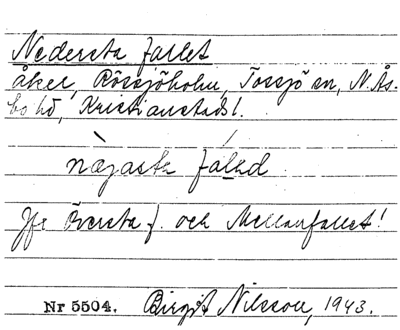 Nedersta fallet
åker, Rössjöholm, Tossjö sn, N. Ås-
bo hd, Kristianstads l.
næjasta faled
Jfr Översta f. och Mellanfallet!
Nr 5504. Birgit Nilsson, 1943.